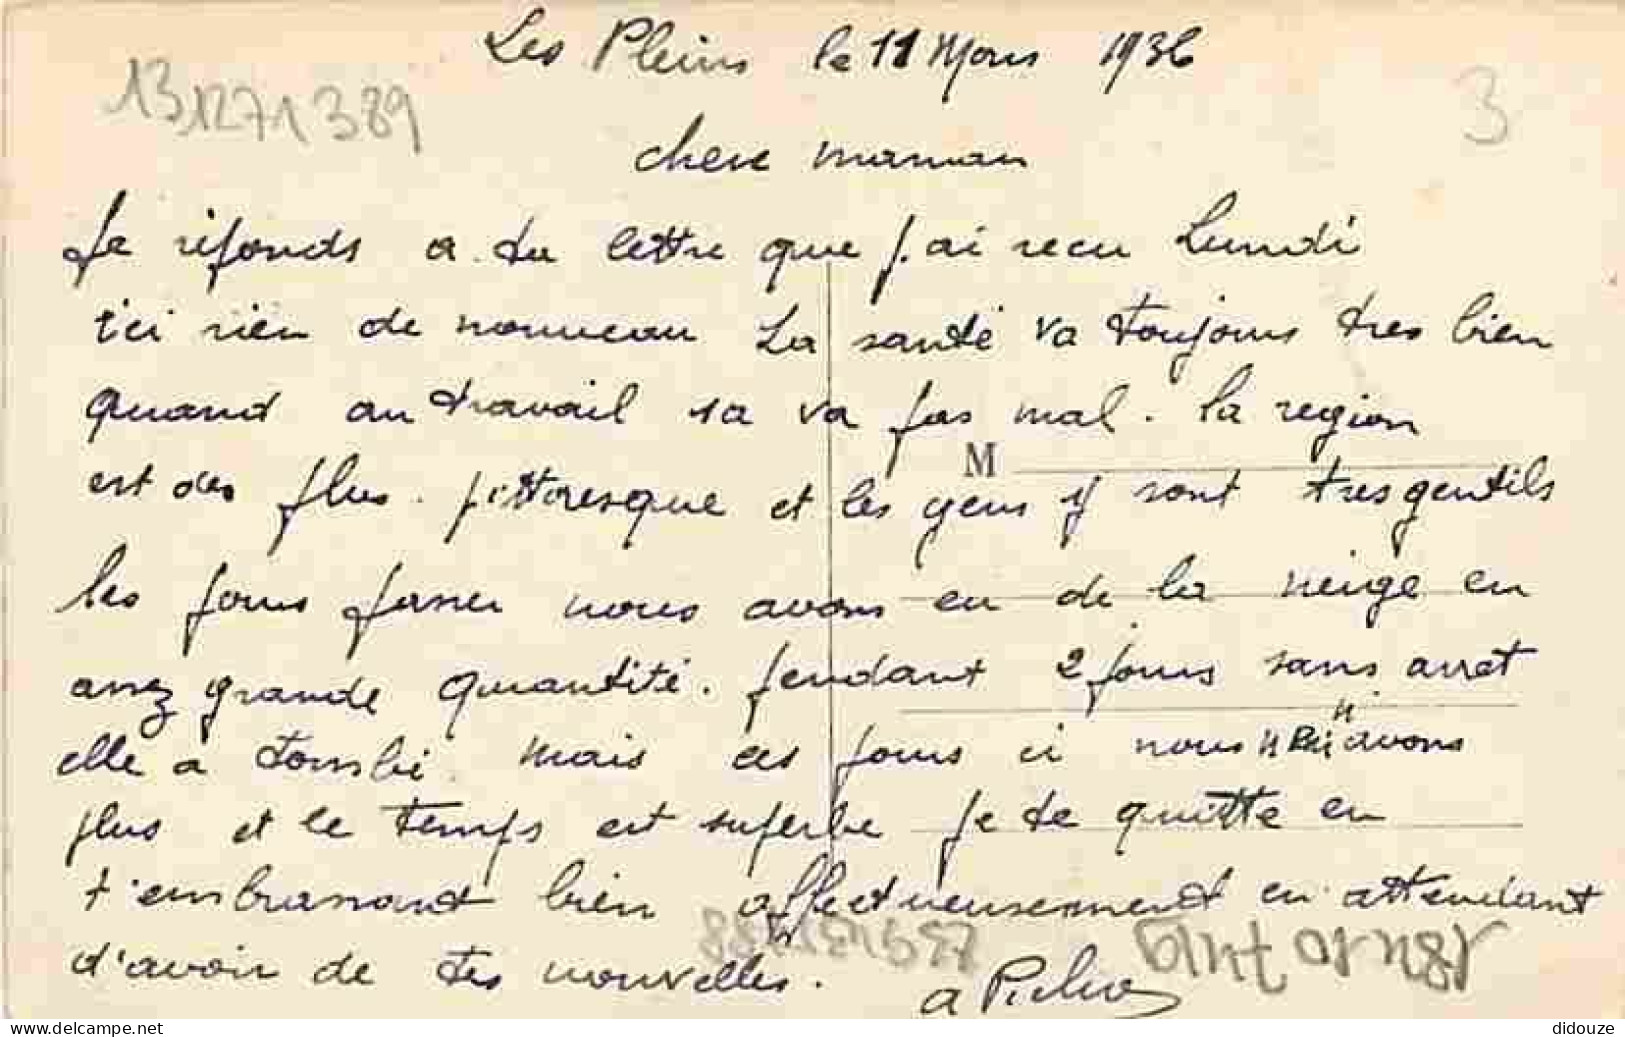 Les Pleins le 11 Mars 1936
131271389
3
chere maman
Je réponds a ta lettre que j'ai recu Lundi
ici rien de nouveau La santé va toujours tres bien
quand au travail sa va pas mal. la region
est des plus. pittoresque et les gens y sont tres gentils
M
les jours passer nous avons eu de la neige en
assez grande quantité. pendant 2 jours sans arret
elle a tombé. mais ces jours ci nous n'en avons
plus et le temps est superbe je te quitte en
t'embrassant bien affectueusement en attendant
d'avoir de tes nouvelles.
delcampe.net
didouze